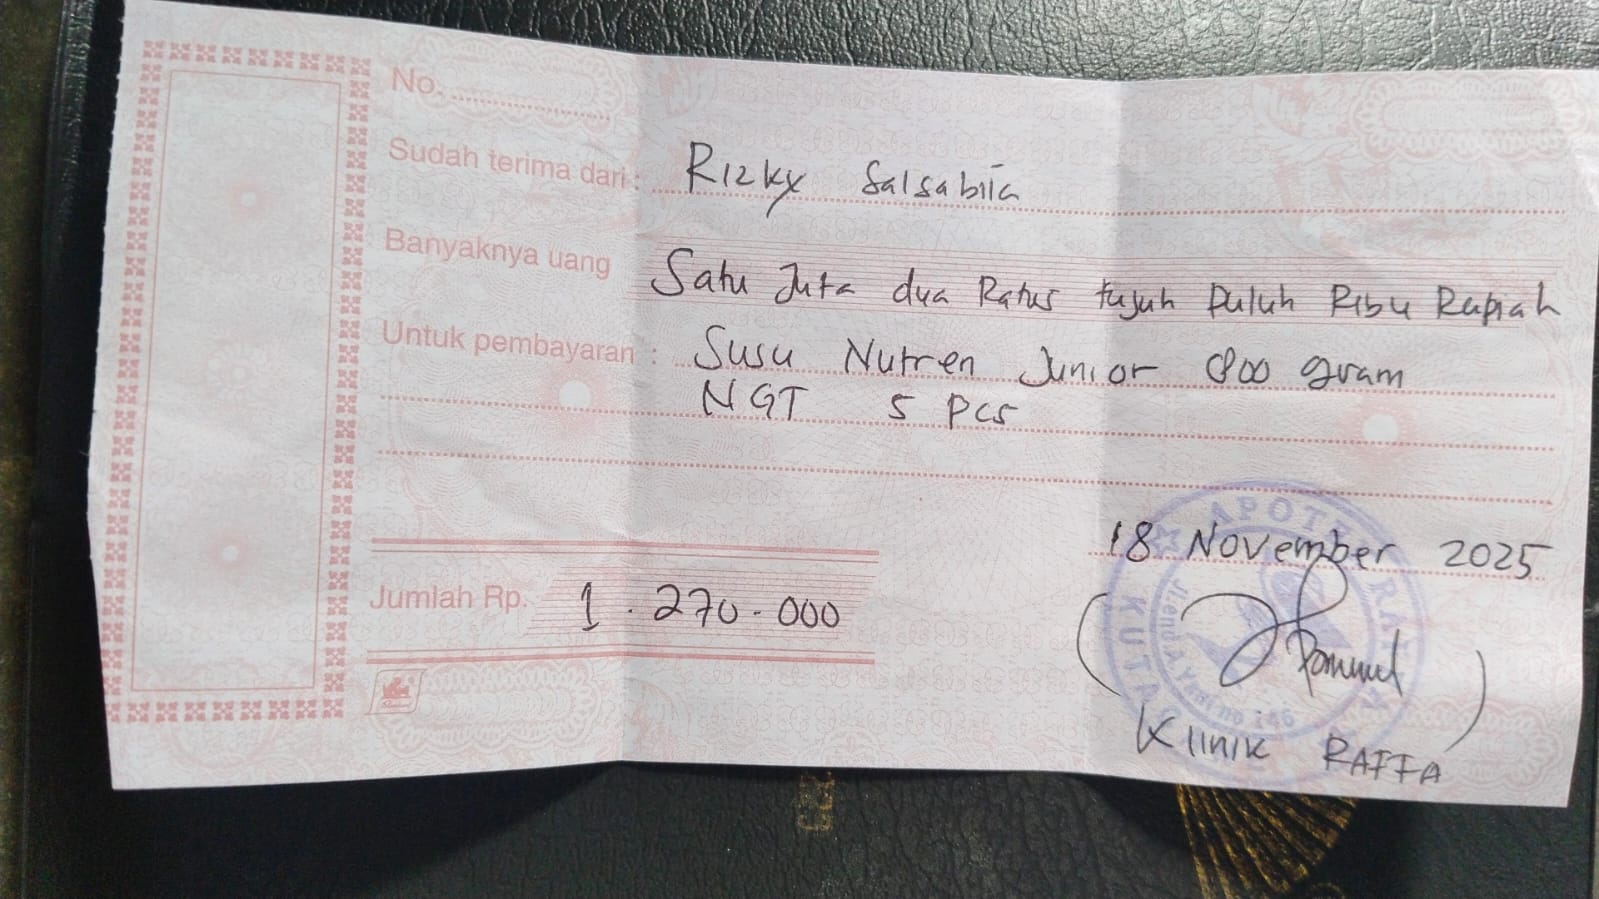 No.
Sudah terima dari : Rizky Salsabila
Banyaknya uang Satu Juta dua Ratus tujuh Puluh Ribu Rupiah
Untuk pembayaran : Susu Nutren Junior 800 gram
NGT 5 Pcs
18 November 2025
Jumlah Rp. 1.270.000
APOTEK RAFFA
KUTAC
no 246
Klinik RAFFA